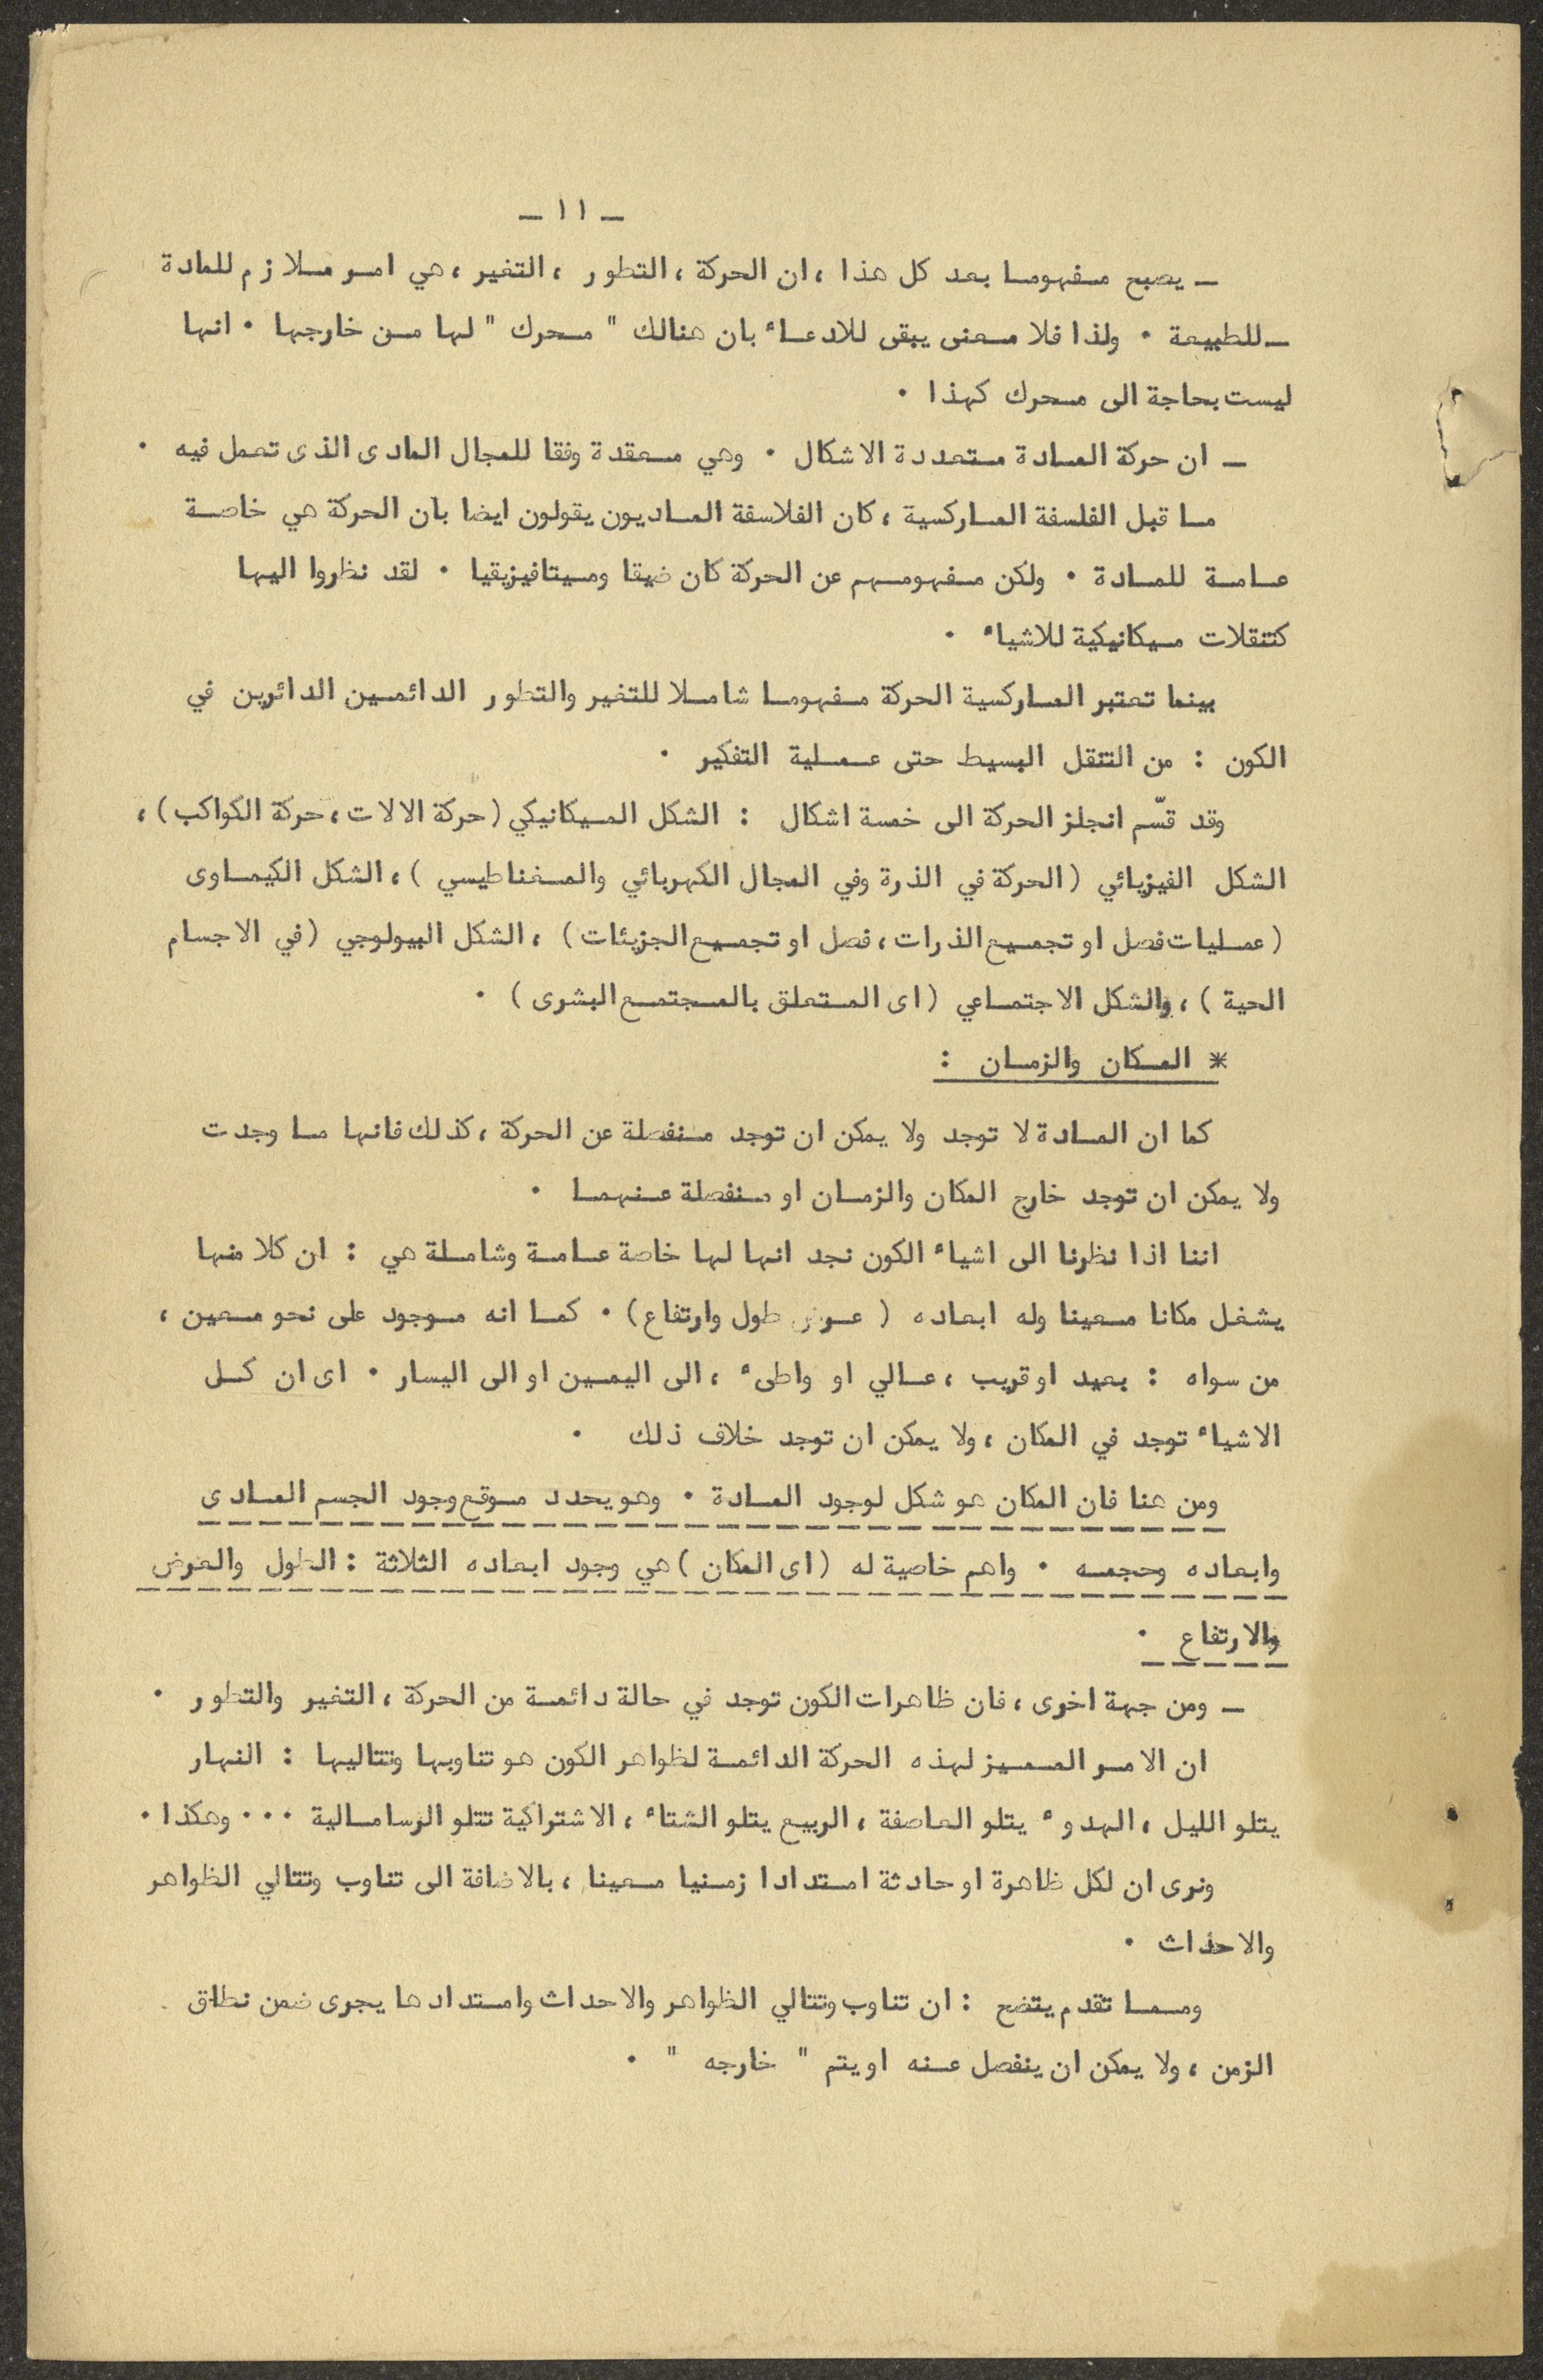 ـ ١١ ـ
ـ يصبح مفهوما بعد كل هذا ، ان الحركة ، التطور ، التغير ، هي امر ملازم للمادة
ـ للطبيعة ٠ ولذا فلا معنى يبقى للادعاء بان هنالك " محرك " لها من خارجها ٠ انها
ليست بحاجة الى محرك كهذا ٠
ـ ان حركة المادة متعددة الاشكال ٠ وهي معقدة وفقا للمجال المادى الذى تعمل فيه ٠
ما قبل الفلسفة الماركسية ، كان الفلاسفة الماديون يقولون ايضا بان الحركة هي خاصة
عامة للمادة ٠ ولكن مفهومهم عن الحركة كان ضيقا وميتافيزيقيا ٠ لقد نظروا اليها
كتنقلات ميكانيكية للاشياء ٠
بينما تعتبر الماركسية الحركة مفهوما شاملا للتغير والتطور الدائمين الدائرين في
الكون : من التنقل البسيط حتى عملية التفكير ٠
وقد قسّم انجلز الحركة الى خمسة اشكال : الشكل الميكانيكي (حركة الالات ، حركة الكواكب) ،
الشكل الفيزيائي (الحركة في الذرة وفي المجال الكهربائي والمغناطيسي ) ، الشكل الكيماوى
(عمليات فصل او تجميع الذرات ، فصل او تجميع الجزيئات) ، الشكل البيولوجي (في الاجسام
الحية ) ، والشكل الاجتماعي (اى المتعلق بالمجتمع البشرى ) ٠
* المكان والزمان :
كما ان المادة لا توجد ولا يمكن ان توجد منفصلة عن الحركة ، كذلك فانها ما وجدت
ولا يمكن ان توجد خارج المكان والزمان او منفصلة عنهما ٠
اننا اذا نظرنا الى اشياء الكون نجد انها لها خاصة عامة وشاملة هي : ان كلا منها
يشغل مكانا معينا وله ابعاده ( عرض طول وارتفاع) ٠ كما انه موجود على نحو معين ،
من سواه : بعيد او قريب ، عالي او واطىء ، الى اليمين او الى اليسار ٠ اى ان كل
الاشياء توجد في المكان ، ولا يمكن ان توجد خلاف ذلك ٠
ومن هنا فان المكان هو شكل لوجود المادة ٠ وهو يحدد موقع وجود الجسم المادى
وابعاده وحجمه ٠ واهم خاصية له (اى المكان ) هي وجود ابعاده الثلاثة : الطول والعرض
والارتفاع ٠
ـ ومن جهة اخرى ، فان ظاهرات الكون توجد في حالة دائمة من الحركة ، التغير والتطور ٠
ان الامر المميز لهذه الحركة الدائمة لظواهر الكون هو تناوبها وتتاليها : النهار
يتلو الليل ، الهدوء يتلو العاصفة ، الربيع يتلو الشتاء ، الاشتراكية تتلو الرسامالية ٠٠٠ وهكذا ٠
ونرى ان لكل ظاهرة او حادثة امتدادا زمنيا معينا ، بالاضافة الى تناوب وتتالي الظواهر
والاحداث ٠
ومما تقدم يتضح : ان تناوب وتتالي الظواهر والاحداث وامتدادها يجرى ضمن نطاق
الزمن ، ولا يمكن ان ينفصل عنه او يتم " خارجه " ٠